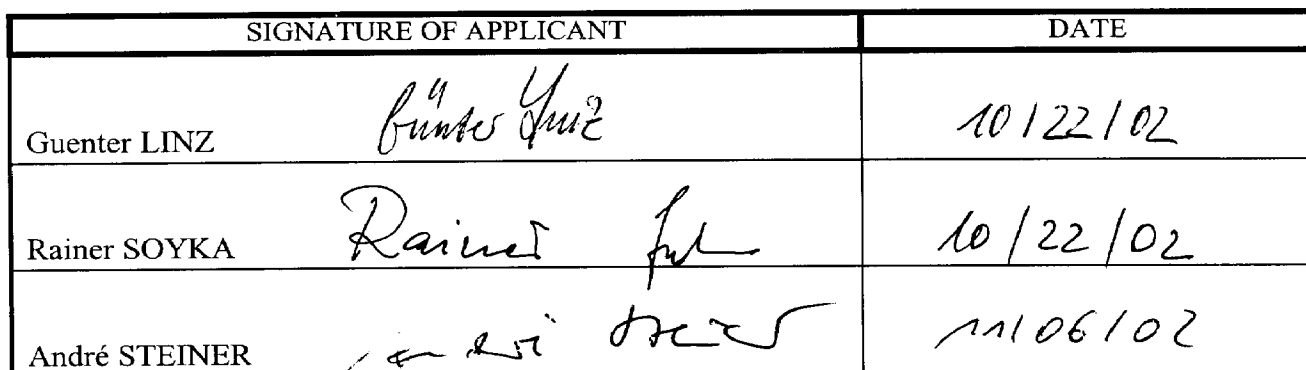 SIGNATURE OF APPLICANT DATE
Guenter LINZ Günter Linz 10/22/02
Rainer SOYKA Rainer 10/22/02
André STEINER 11/06/02